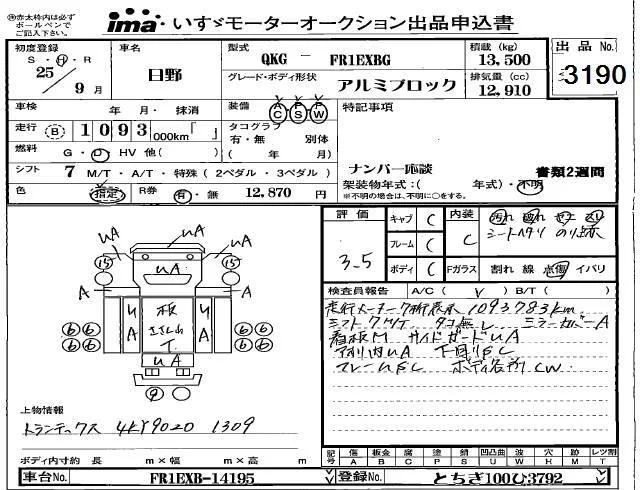 ㊟赤太枠内は必ず
ボールペンで
ご記入下さい。
ima・いすゞモーターオークション出品申込書
初度登録 S・H・R 25/9月
車名 日野
型式 QKG － FR1EXBG
積載 (kg) 13,500
出品 No. 3190
グレード・ボディ形状 アルミブロック
排気量 (cc) 12,910
車検 年・月・抹消
装備 AC PS PW
特記事項
走行 B 1093 000km「 」
タコグラフ 有・無 別体
( 年 月)
燃料 G・D HV 他( )
ナンバー応談 書類2週間
シフト 7 M/T・A/T・特殊(2ペダル・3ペダル)
架装物年式:( 年式)・不明
※不明の場合は、不明に○をする。
色 指定 R券 有・無 12,870 円
評価 3.5
キャブ C
フレーム C
ボディ C
内装 C
汚れ 破れ
シートヘタリ
Fガラス 割れ 線 点傷 イバリ
検査員報告 A/C( V ) B/T( )
走行メーター7桁表示 1093783km
シフト7MT タコ無し ミラーカバーA
看板M サイドガードUA
アオリ内UA 下回りSC
フレームSC ボディ各所CW
UA UA UA
15 UA 15
A A
UA 板 UA
ささくれ
T
UA
6 6 6 6
6 6 6 6
9
上物情報
トランテックス 4KY9020 1309
ボディ内寸約 長 m×幅 m×高 m
記号 傷 A 板金 B 腐 C 塗 P 錆 S 凹凸曲 U 波 W 穴 H 跡 M レンズ割 T
車台No. FR1EXB-14195
登録No. とちぎ100ひ3792